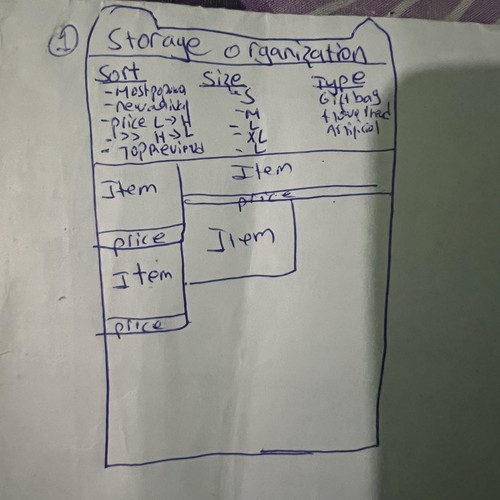 1
Storage organization
Sort
- Most popular
- new
- price L → H
- >> H → L
- Top Reviewed
Size
- S
- M
- L
- XL
- L
Type
Gift bag
Artificial
Item
price
Item
price
Item
price
Item